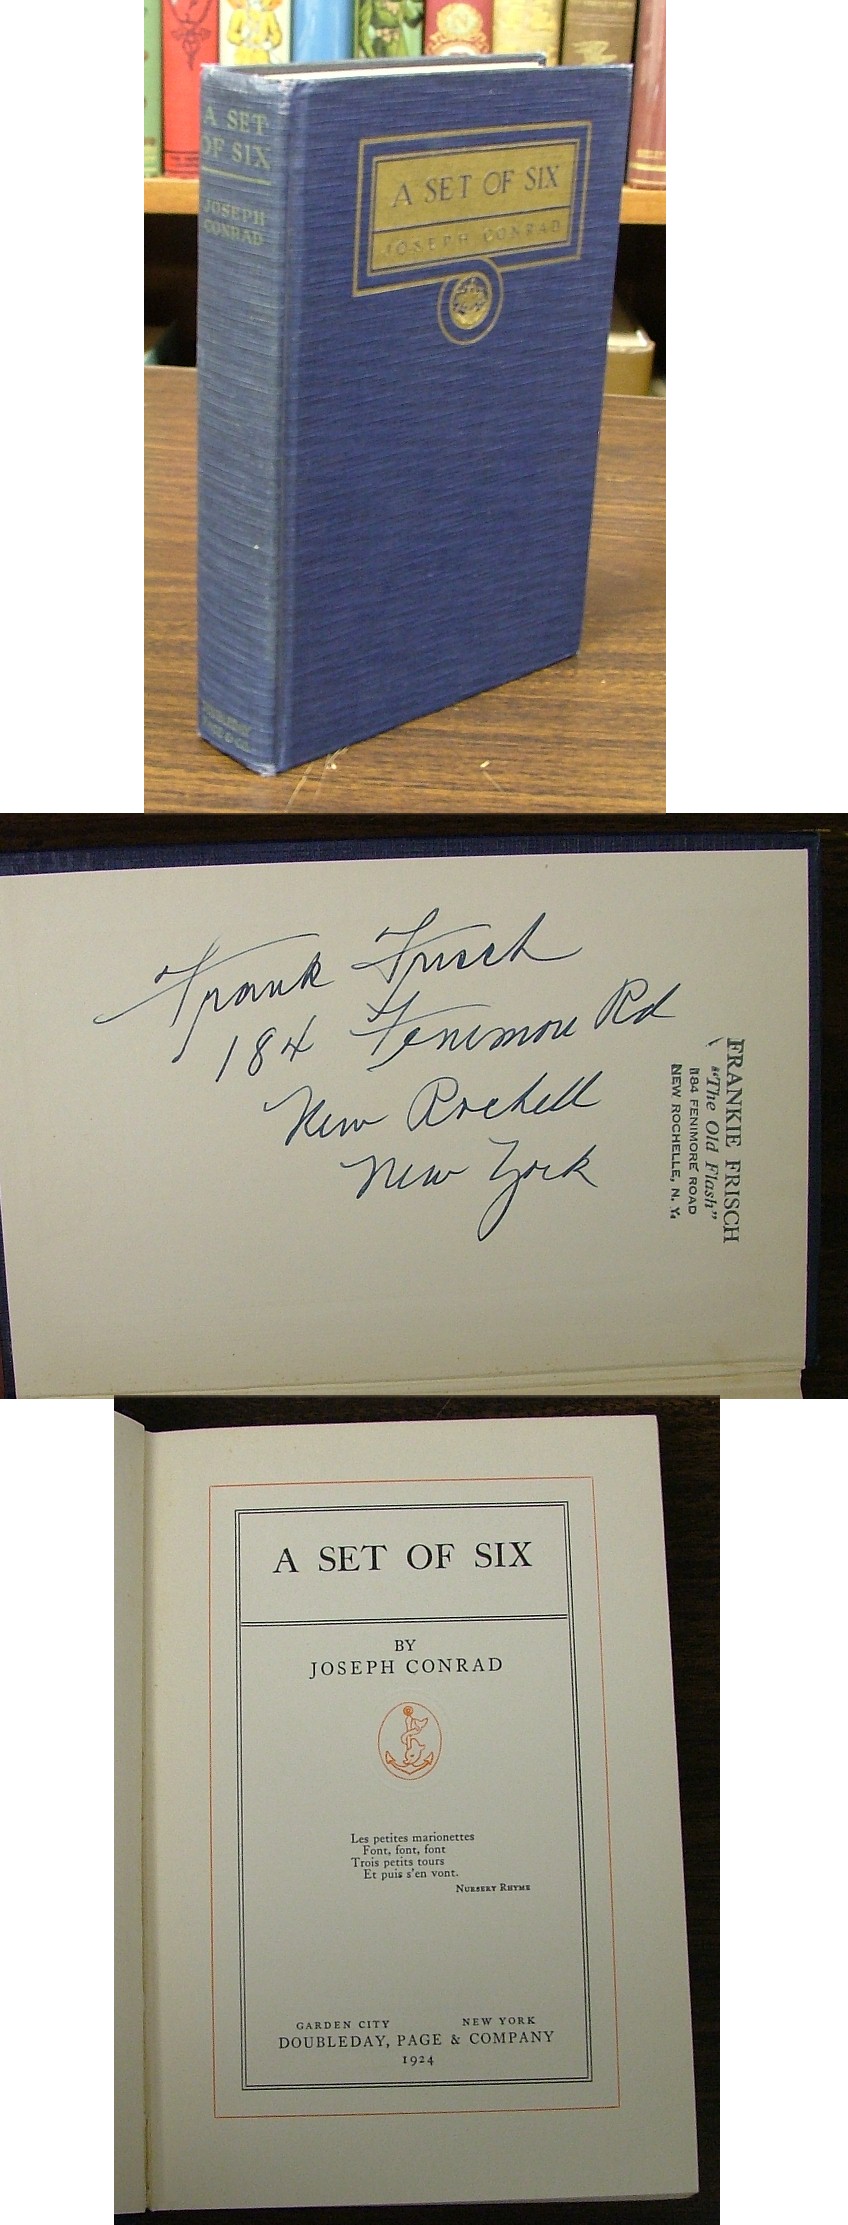 A SET
OF SIX
JOSEPH
CONRAD
DOUBLEDAY
PAGE & CO.
A SET OF SIX
JOSEPH CONRAD
Frank Frisch
184 Fenimore Rd
New Rochell
New York
FRANKIE FRISCH
"The Old Flash"
184 FENIMORE ROAD
NEW ROCHELLE, N. Y.
A SET OF SIX
BY
JOSEPH CONRAD
Les petites marionettes
Font, font, font
Trois petits tours
Et puis s'en vont.
NURSERY RHYME
GARDEN CITY NEW YORK
DOUBLEDAY, PAGE & COMPANY
1924